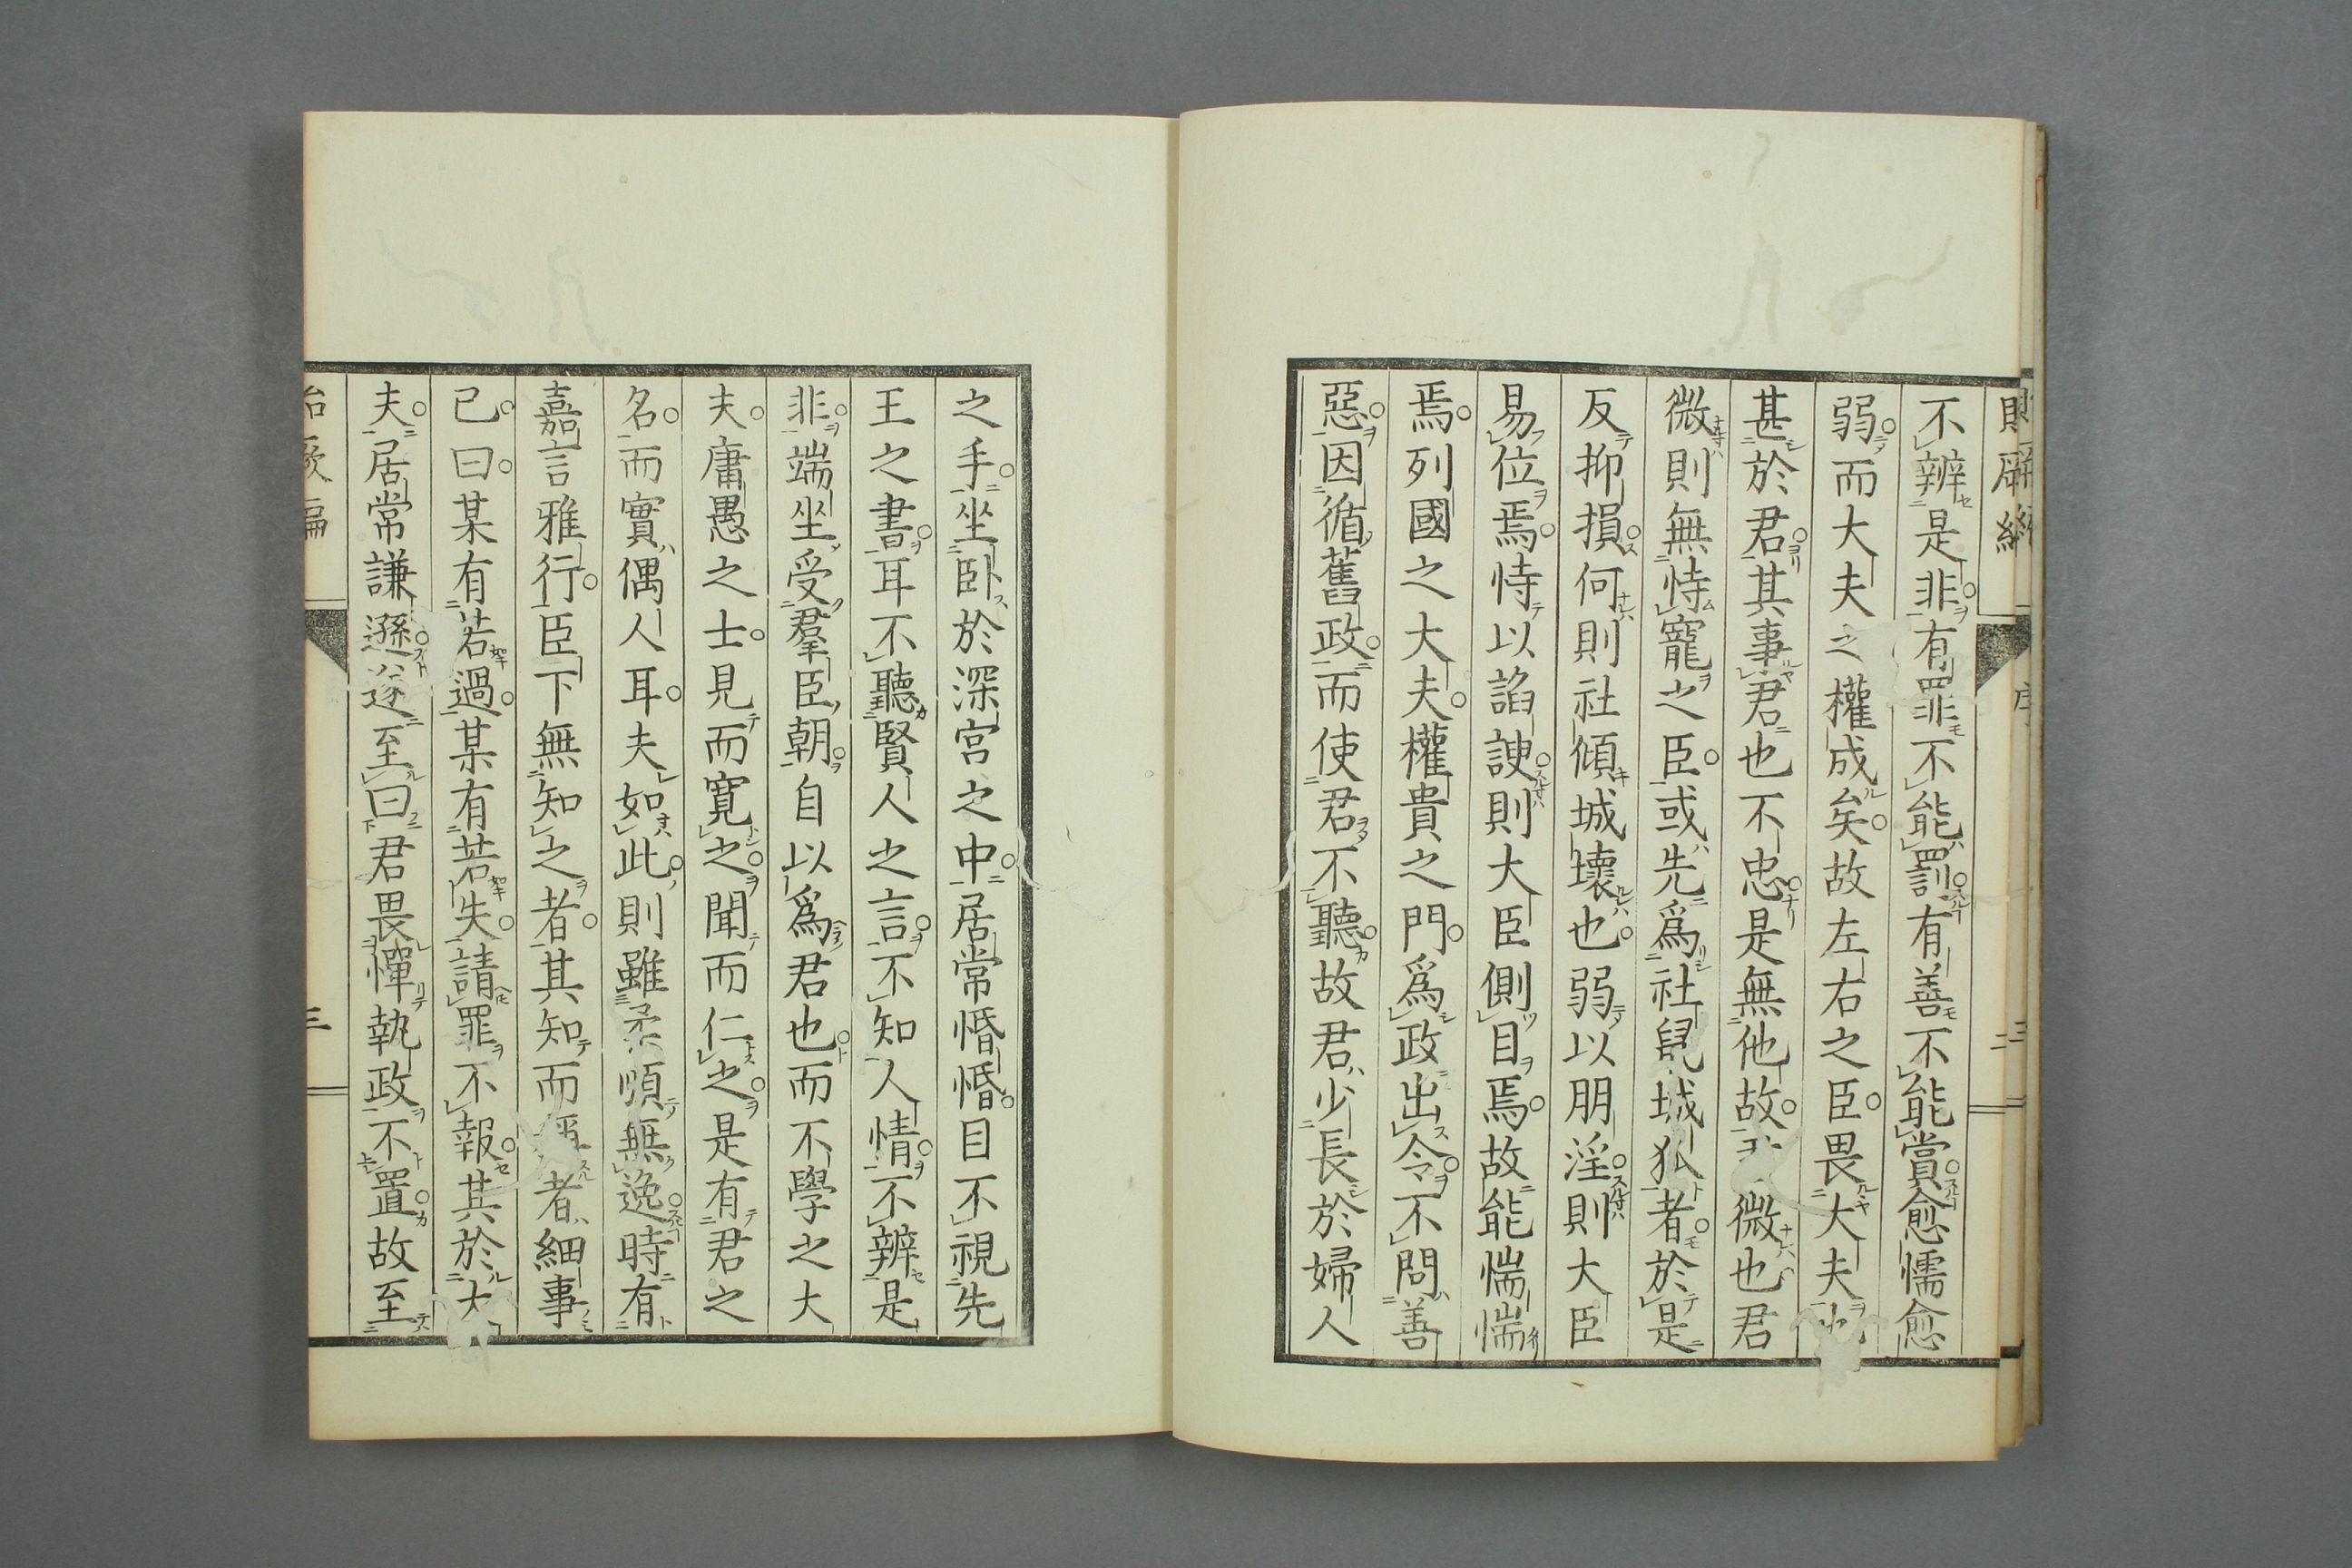 不辨是非有罪不能罰有善不能賞愈懦愈
弱而大夫之權成矣故左右之臣畏大夫
甚於君其事君也不忠是無他故微也君
微則無恃寵之臣或先爲社鼠城狐者於是
反抑損何則社傾城壞也弱以朋淫則大臣
易位焉恃以諂諛則大臣側目焉故能惴惴
焉列國之大夫權貴之門爲政出令不問善
惡因循舊政而使君不聽故君少長於婦人
之手坐臥於深宮之中居常惛惛目不視先
王之書耳不聽賢人之言不知人情不辨是
非端坐受羣臣朝自以爲君也而不學之大
夫庸愚之士見而寛之聞而仁之是有君之
名而實偶人耳夫如此則雖柔順無逸時有
嘉言雅行臣下無知之者其知而者細事
已曰某有若過某有若失請罪不報其於大
夫居常謙遜遂至曰君畏憚執政不置故至
三